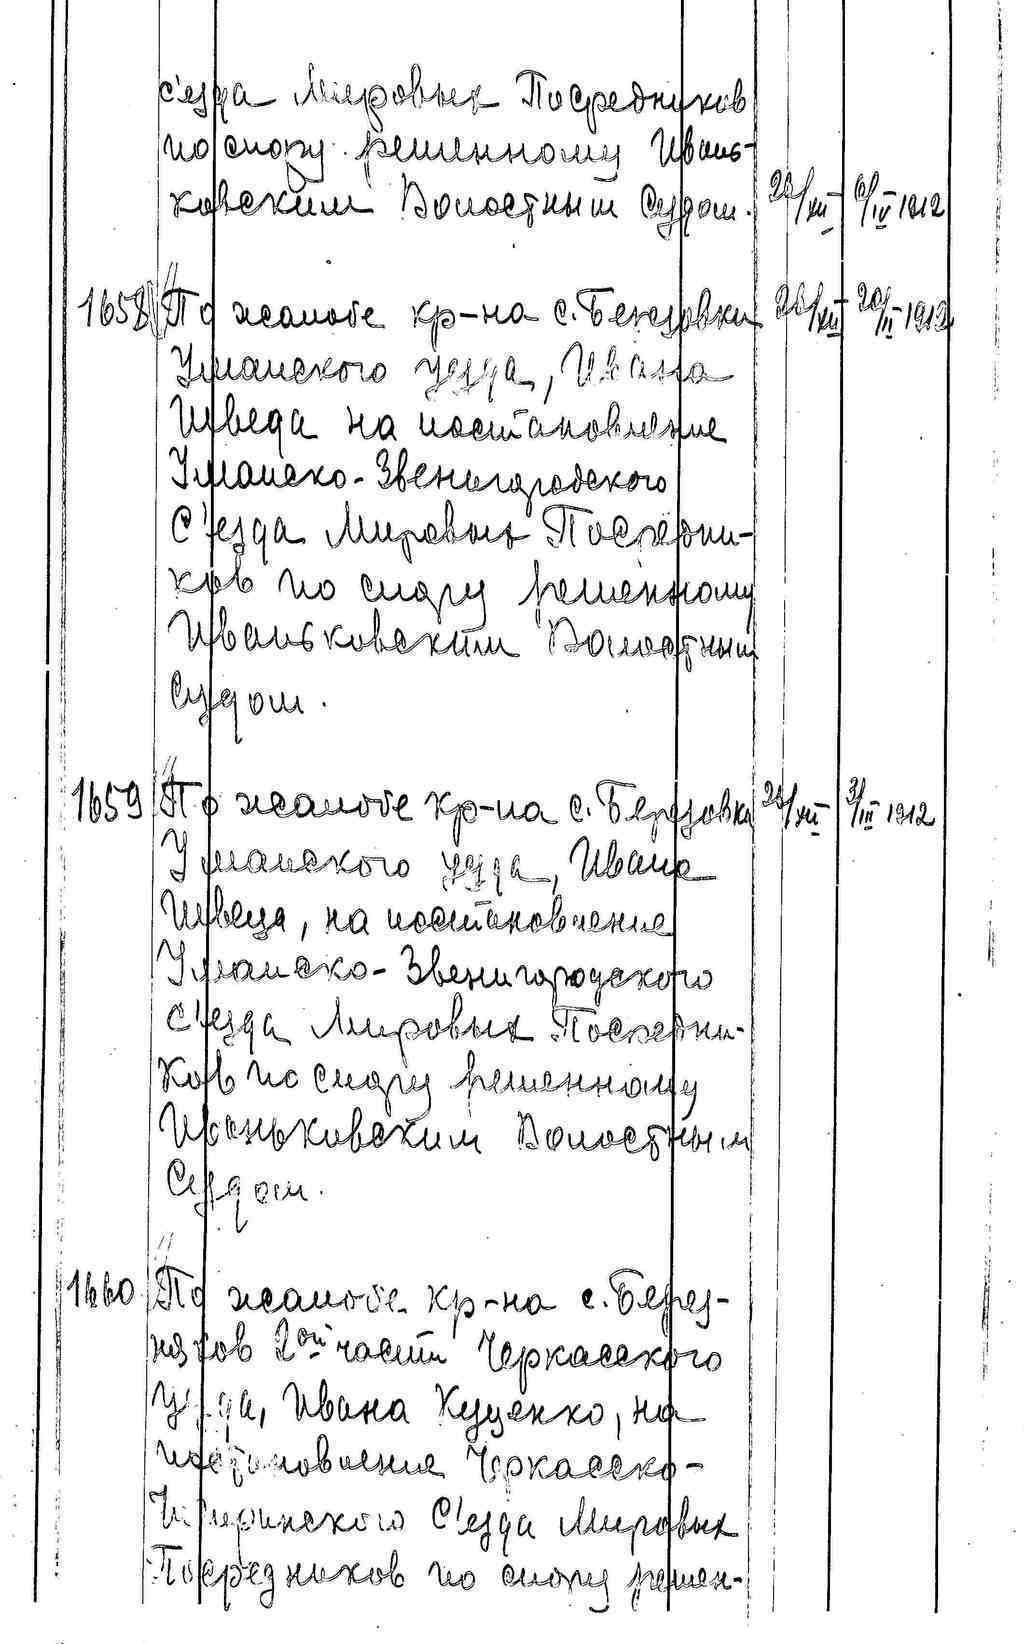 с'езда Мировых Посредников
по спору решенному Ивань-
ковским Волостным Судом. 23/XII 6/IV 1912
1658 По жалобе кр-на с. Березовки 23/XII 20/II-1912
Уманского уезда, Ивана
Шведа на постановление
Уманско-Звенигородского
С'езда Мировых Посредни-
ков по спору решенному
Иваньковским Волостным
Судом.
1659 По жалобе кр-на с. Березовки 23/XII 31/III 1912
Уманского уезда, Ивана
Швеца, на постановление
Уманско-Звенигородского
С'езда Мировых Посредни-
ков по спору решенному
Иваньковским Волостным
Судом.
1660 По жалобе кр-на с. Берез-
няков 2ой части Черкасского
уезда, Ивана Куценко, на
постановление Черкасско-
Чигиринского С'езда Мировых
Посредников по спору решен-